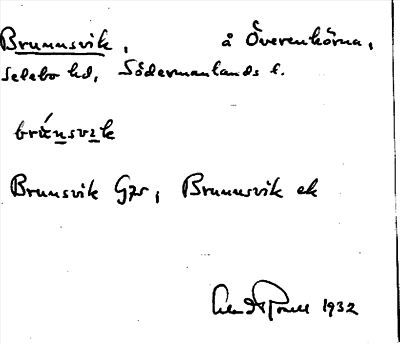 Brunnsvik, å Överenhörna,
Selebo hd, Södermanlands l.
Brunnsvik Gzr, Brunnsvik ek
1932